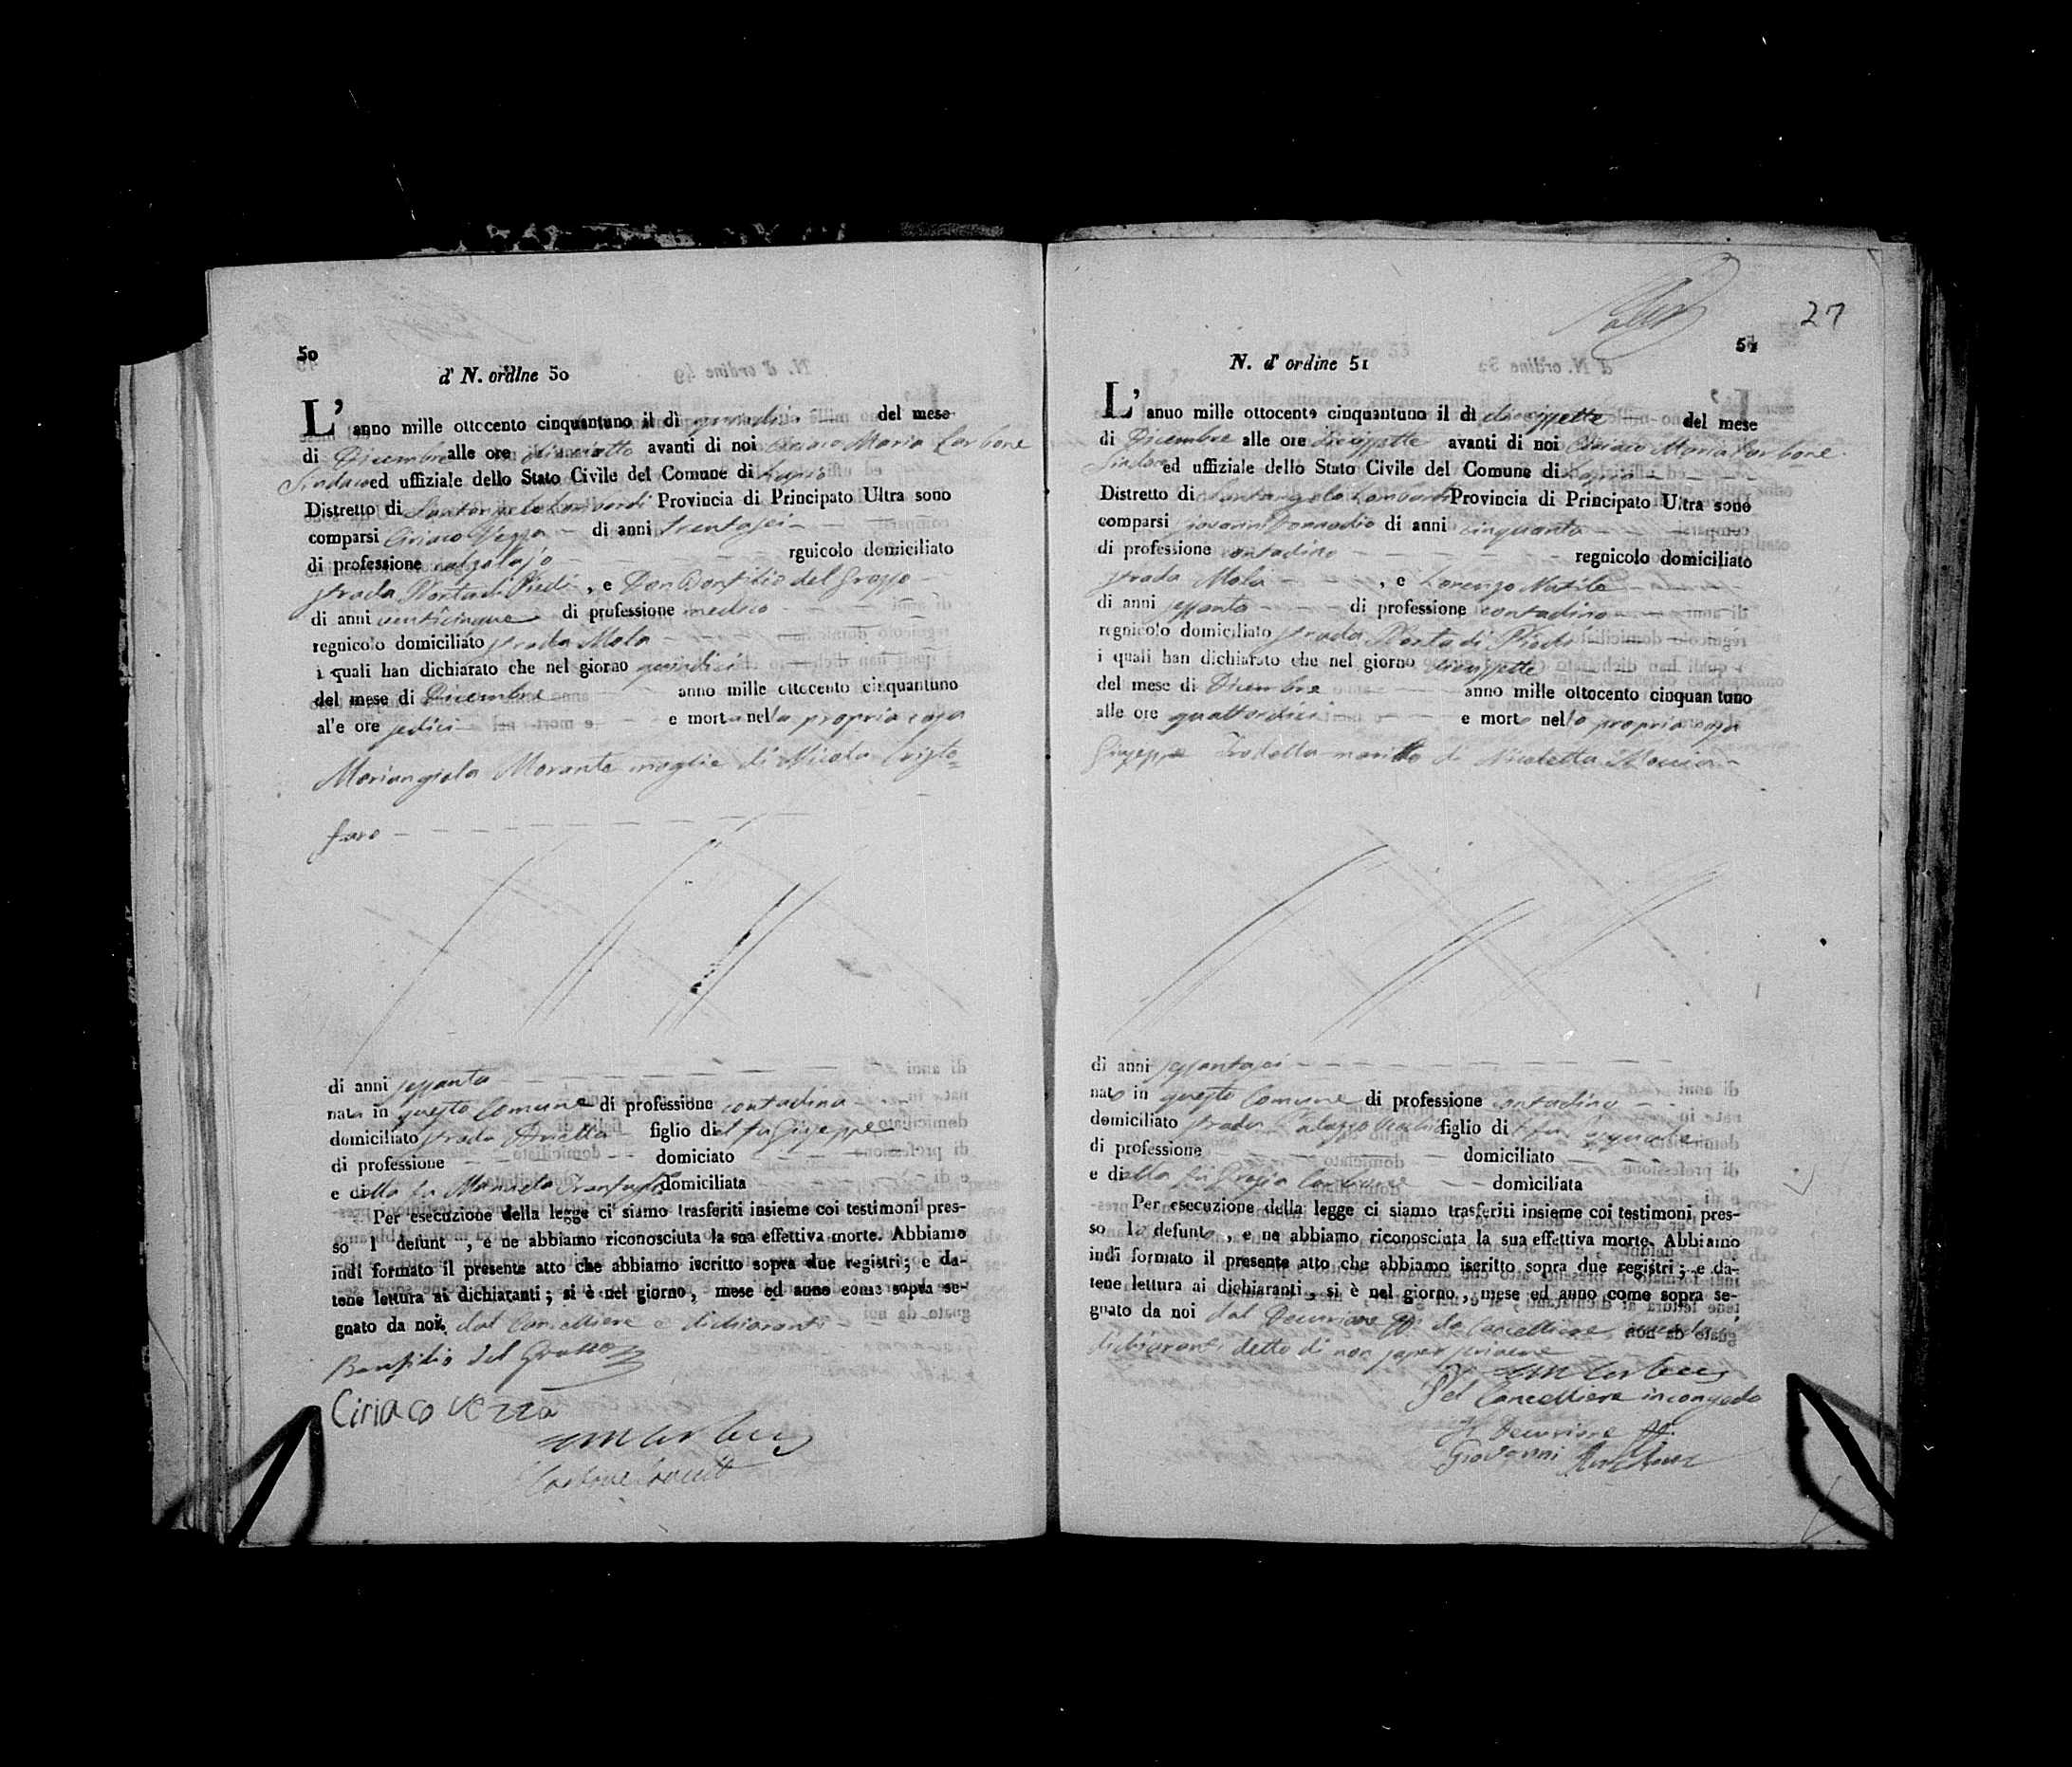 50
d' N. ordine 50
L' anno mille ottocento cinquantuno il dì quindici del mese
di Dicembre alle ore diciotto avanti di noi Ciriaco Maria Carbone
Sindaco ed uffiziale dello Stato Civile del Comune di Lapio
Distretto di Santangelo Lombardi Provincia di Principato Ultra sono
comparsi Ciriaco Vezza di anni trentasei
di professione calzolajo rguicolo domiciliato
strada Porta di Piedi, e Don Bonfilio del Grosso
di anni venticinque di professione medico
regnicolo domiciliato strada Mola
i quali han dichiarato che nel giorno quindici
del mese di Dicembre anno mille ottocento cinquantuno
al'e ore sedici e morta nella propria casa
Mariangiola Morante moglie di Nicola Cristo=
faro
di anni sessanta
nata in questo Comune di professione contadina
domiciliato strada figlio del fu Giuseppe
di professione domiciato
e della fu domiciliata
Per esecuzione della legge ci siamo trasferiti insieme coi testimoni pres-
so l defunt , e ne abbiamo riconosciuta la sua effettiva morte. Abbiamo
indi formato il presente atto che abbiamo iscritto sopra due registri; e da-
tene lettura ai dichiaranti; si è nel giorno, mese ed anno come sopra se-
gnato da noi, dal Cancelliere e dichiaranti
Bonfilio del Grosso
Ciriaco Vezza
27
51
N. d' ordine 51
L' anuo mille ottocento cinquantuno il dì diecissette del mese
di Dicembre alle ore diecissette avanti di noi Ciriaco Maria Carbone
Sindaco ed uffiziale dello Stato Civile del Comune di Lapio
Distretto di Santangelo Lombardi Provincia di Principato Ultra sono
comparsi Giovanni di anni cinquanta
di professione contadino regnicolo domiciliato
strada Mola , e Lorenzo Natile
di anni sessanta di professione contadino
regnicolo domiciliato strada Porta di Piedi
i quali han dichiarato che nel giorno diecissette
del mese di Dicembre anno mille ottocento cinquan tuno
alle ore quattordici e morto nella propria casa
Giuseppe marito di Nicoletta
di anni sessantasei
nato in questo Comune di professione contadino
domiciliato strada Palazzo figlio di
di professione domiciliato
e della fu Grazia domiciliata
Per esecuzione della legge ci siamo trasferiti insieme coi testimoni pres-
so lo defunto, e ne abbiamo riconosciuta la sua effettiva morte. Abbiamo
indi formato il presente atto che abbiamo iscritto sopra due registri; e da-
tene lettura ai dichiaranti, si è nel giorno, mese ed anno come sopra se-
gnato da noi dal Decurione da Cancelliere, avendo i
dichiaranti detto di non saper scrivere
Pel Cancelliere in congedo
Il Decurione
Giovanni